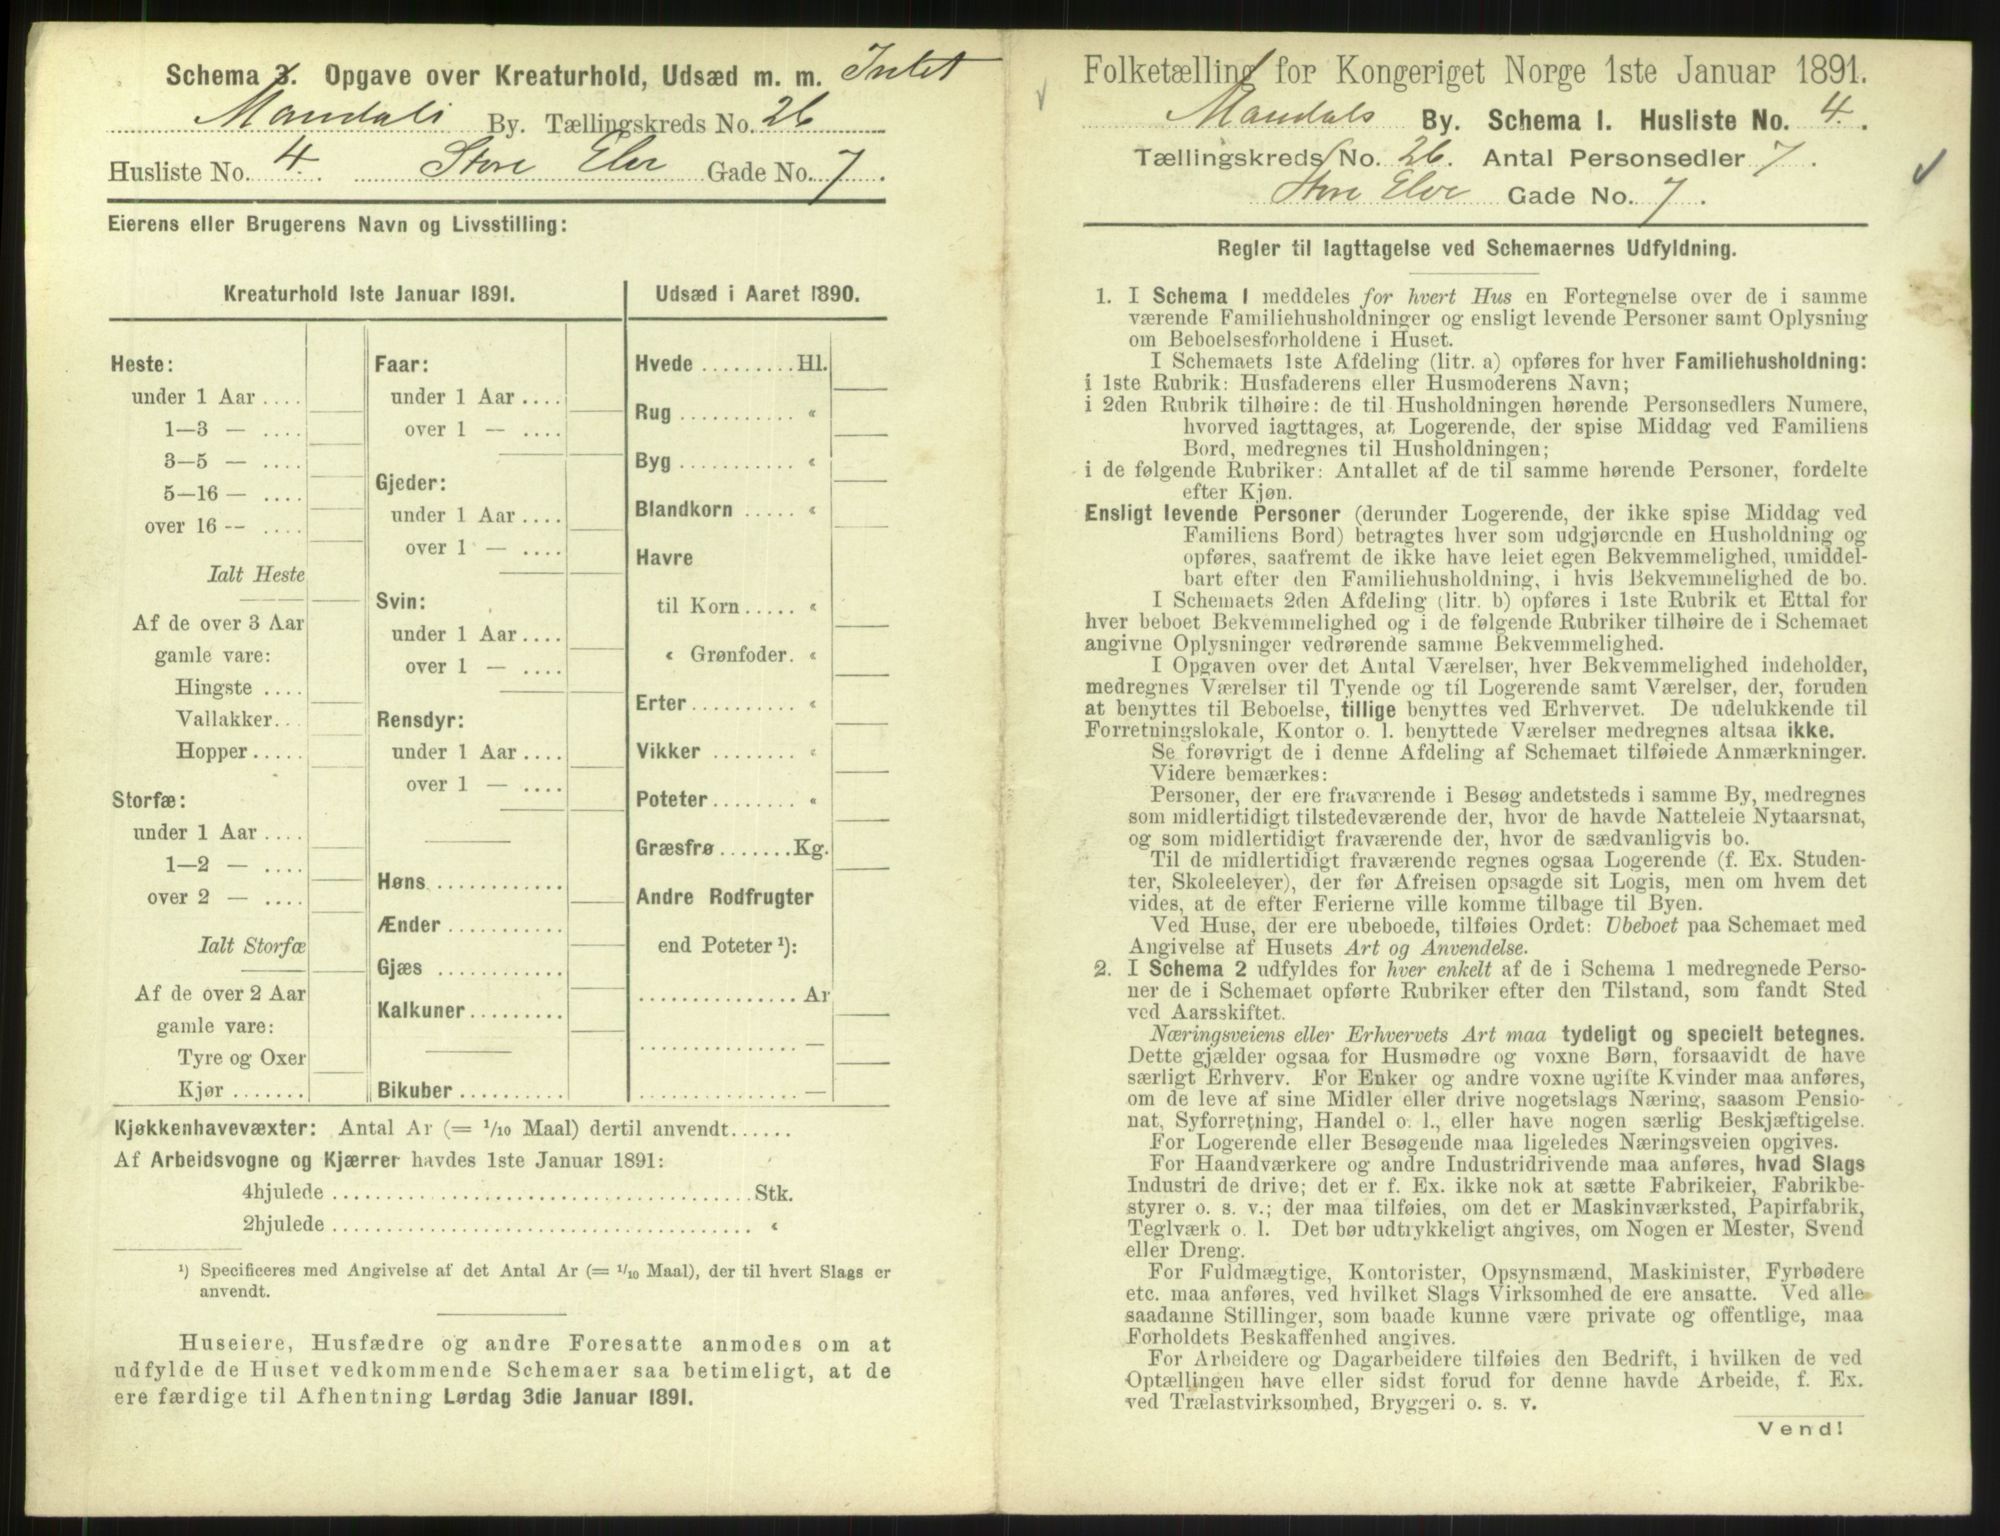 Schema 3. Opgave over Kreaturhold, Udsæd m. m. Intet
Mandals By. Tællingskreds No. 26
Husliste No. 4. Store Elve Gade No. 7.
Eierens eller Brugerens Navn og Livsstilling:
Kreaturhold 1ste Januar 1891.
Heste:
under 1 Aar ....
1—3 — ....
3—5 — ....
5—16 — ....
over 16 -- ....
Ialt Heste
Af de over 3 Aar
gamle vare:
Hingste ....
Vallakker...
Hopper.....
Storfæ:
under 1 Aar ....
1—2 — ....
over 2 — ....
Ialt Storfæ
Af de over 2 Aar
gamle vare:
Tyre og Oxer
Kjør .......
Faar:
under 1 Aar ....
over 1 — ....
Gjeder:
under 1 Aar ....
over 1 — ....
Svin:
under 1 Aar ....
over 1 — ....
Rensdyr:
under 1 Aar ....
over 1 — ....
Høns ............
Ænder ...........
Gjæs ............
Kalkuner.........
Bikuber ..........
Udsæd i Aaret 1890.
Hvede .........Hl.
Rug ........... «
Byg ........... «
Blandkorn ..... «
Havre
til Korn..... «
« Grønfoder. «
Erter.......... «
Vikker ........ «
Poteter........ «
Græsfrø.......Kg.
Andre Rodfrugter
end Poteter ¹):
............... Ar
............... —
............... —
Kjøkkenhavevæxter: Antal Ar (= 1/10 Maal) dertil anvendt......
Af Arbeidsvogne og Kjærrer havdes 1ste Januar 1891:
4hjulede ........................................ Stk.
2hjulede ........................................ «
¹) Specificeres med Angivelse af det Antal Ar (= 1/10 Maal), der til hvert Slags er
anvendt.
Huseiere, Husfædre og andre Foresatte anmodes om at
udfylde de Huset vedkommende Schemaer saa betimeligt, at de
ere færdige til Afhentning Lørdag 3die Januar 1891.
Folketælling for Kongeriget Norge 1ste Januar 1891.
Mandals By. Schema I. Husliste No. 4.
Tællingskreds No. 26. Antal Personsedler 7.
Store Elve Gade No. 7.
Regler til Iagttagelse ved Schemaernes Udfyldning.
1. I Schema 1 meddeles for hvert Hus en Fortegnelse over de i samme
værende Familiehusholdninger og ensligt levende Personer samt Oplysning
om Beboelsesforholdene i Huset.
I Schemaets 1ste Afdeling (litr. a) opføres for hver Familiehusholdning:
i 1ste Rubrik: Husfaderens eller Husmoderens Navn;
i 2den Rubrik tilhøire: de til Husholdningen hørende Personsedlers Numere,
hvorved iagttages, at Logerende, der spise Middag ved Familiens
Bord, medregnes til Husholdningen;
i de følgende Rubriker: Antallet af de til samme hørende Personer, fordelte
efter Kjøn.
Ensligt levende Personer (derunder Logerende, der ikke spise Middag ved
Familiens Bord) betragtes hver som udgjørende en Husholdning og
opføres, saafremt de ikke have leiet egen Bekvemmelighed, umiddel-
bart efter den Familiehusholdning, i hvis Bekvemmelighed de bo.
I Schemaets 2den Afdeling (litr. b) opføres i 1ste Rubrik et Ettal for
hver beboet Bekvemmelighed og i de følgende Rubriker tilhøire de i Schemaet
angivne Oplysninger vedrørende samme Bekvemmelighed.
I Opgaven over det Antal Værelser, hver Bekvemmelighed indeholder,
medregnes Værelser til Tyende og til Logerende samt Værelser, der, foruden
at benyttes til Beboelse, tillige benyttes ved Erhvervet. De udelukkende til
Forretningslokale, Kontor o. l. benyttede Værelser medregnes altsaa ikke.
Se forøvrigt de i denne Afdeling af Schemaet tilføiede Anmærkninger.
Videre bemærkes:
Personer, der ere fraværende i Besøg andetsteds i samme By, medregnes
som midlertidigt tilstedeværende der, hvor de havde Natteleie Nytaarsnat,
og som midlertidigt fraværende der, hvor de sædvanligvis bo.
Til de midlertidigt fraværende regnes ogsaa Logerende (f. Ex. Studen-
ter, Skoleelever), der før Afreisen opsagde sit Logis, men om hvem det
vides, at de efter Ferierne ville komme tilbage til Byen.
Ved Huse, der ere ubeboede, tilføies Ordet: Ubeboet paa Schemaet med
Angivelse af Husets Art og Anvendelse.
2. I Schema 2 udfyldes for hver enkelt af de i Schema 1 medregnede Perso-
ner de i Schemaet opførte Rubriker efter den Tilstand, som fandt Sted
ved Aarsskiftet.
Næringsveiens eller Erhvervets Art maa tydeligt og specielt betegnes.
Dette gjælder ogsaa for Husmødre og voxne Børn, forsaavidt de have
særligt Erhverv. For Enker og andre voxne ugifte Kvinder maa anføres,
om de leve af sine Midler eller drive nogetslags Næring, saasom Pensio-
nat, Syforretning, Handel o. l., eller have nogen særlig Beskjæftigelse.
For Logerende eller Besøgende maa ligeledes Næringsveien opgives.
For Haandværkere og andre Industridrivende maa anføres, hvad Slags
Industri de drive; det er f. Ex. ikke nok at sætte Fabrikeier, Fabrikbe-
styrer o. s. v.; der maa tilføies, om det er Maskinværksted, Papirfabrik,
Teglværk o. l. Det bør udtrykkeligt angives, om Nogen er Mester, Svend
eller Dreng.
For Fuldmægtige, Kontorister, Opsynsmænd, Maskinister, Fyrbødere
etc. maa anføres, ved hvilket Slags Virksomhed de ere ansatte. Ved alle
saadanne Stillinger, som baade kunne være private og offentlige, maa
Forholdets Beskaffenhed angives.
For Arbeidere og Dagarbeidere tilføies den Bedrift, i hvilken de ved
Optællingen have eller sidst forud for denne havde Arbeide, f. Ex.
ved Trælastvirksomhed, Bryggeri o. s. v.
Vend!